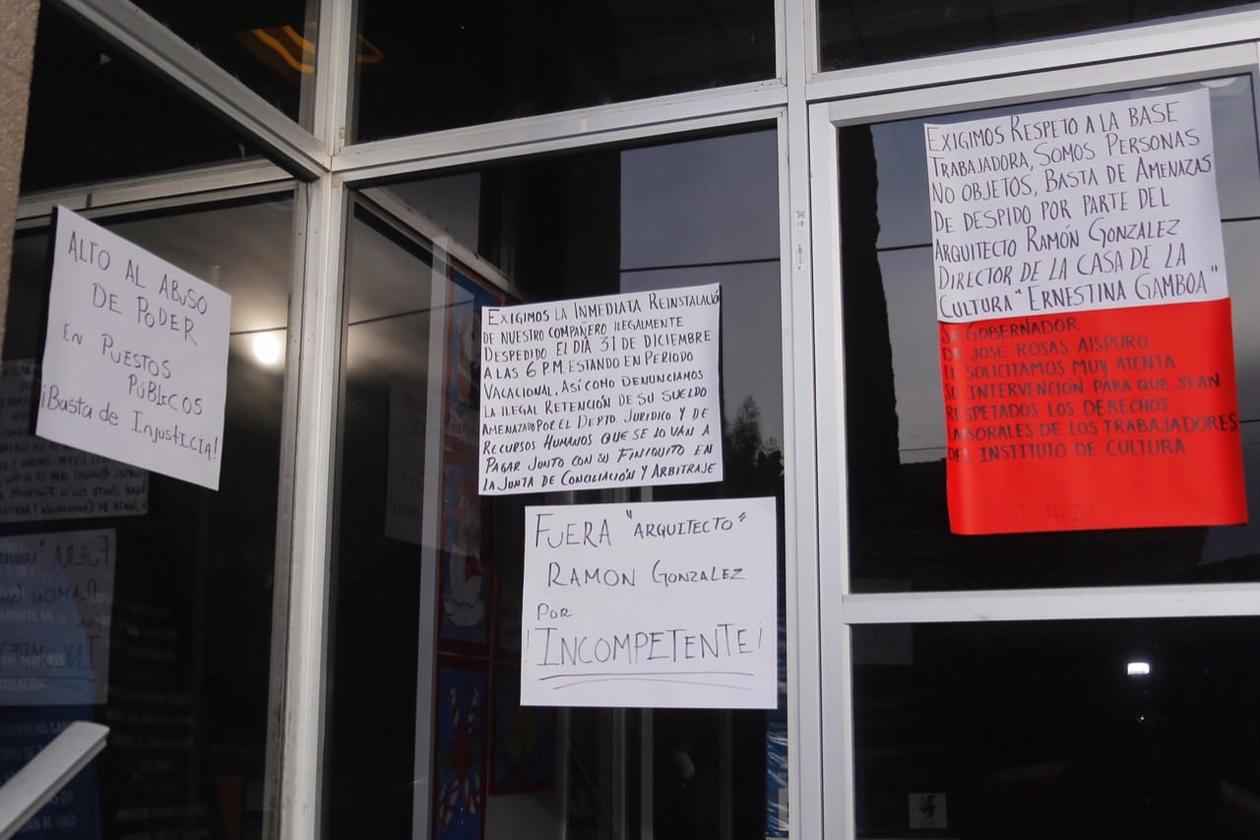 ALTO AL ABUSO
DE PODER
EN PUESTOS
PÚBLICOS
¡Basta de Injusticia!
EXIGIMOS LA INMEDIATA REINSTALACIÓ
DE NUESTRO COMPAÑERO ILEGALMENTE
DESPEDIDO EL DIA 31 DE DICIEMBRE
A LAS 6 P.M. ESTANDO EN PERIODO
VACACIONAL, ASÍ COMO DENUNCIAMOS
LA ILEGAL RETENCIÓN DE SU SUELDO
AMENAZADO POR EL DEPTO. JURIDICO Y DE
RECURSOS HUMANOS QUE SE LO VAN A
PAGAR JUNTO CON SU FINIQUITO EN
LA JUNTA DE CONCILIACIÓN Y ARBITRAJE
FUERA "ARQUITECTO"
RAMON GONZALEZ
POR
¡INCOMPETENTE!
EXIGIMOS RESPETO A LA BASE
TRABAJADORA, SOMOS PERSONAS
NO OBJETOS, BASTA DE AMENAZAS
DE DESPIDO POR PARTE DEL
ARQUITECTO RAMÓN GONZALEZ
DIRECTOR DE LA CASA DE LA
CULTURA "ERNESTINA GAMBOA"
GOBERNADOR
JOSE ROSAS AISPURO
LE SOLICITAMOS MUY ATENTA
SU INTERVENCION PARA QUE SEAN
RESPETADOS LOS DERECHOS
LABORALES DE LOS TRABAJADORES
DEL INSTITUTO DE CULTURA